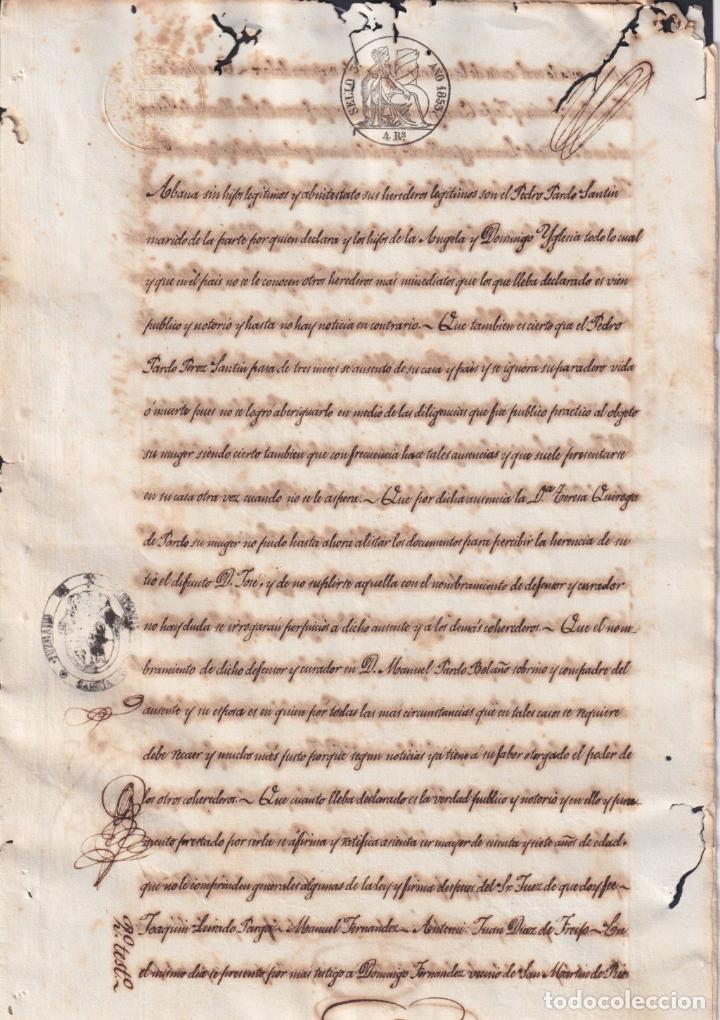 SELLO 3º AÑO 1853.
4 Rs.
Abana sin hijos legitimos y abintestato sus herederos legitimos son el Pedro Pardo Santin
marido de la parte por quien declara y los hijos de la Angela y Domingo Yglesia todo lo cual
y que en el pais no se le conocen otros herederos mas inmediatos que los que lleba declarado es vien
publico y notorio y hasta no hay noticia en contrario.~ Que tambien es cierto que el Pedro
Pardo Perez Santin pasa de tres meses se ausento de su casa y pais y se ignora su paradero vida
ó muerte pues no se logro aberiguarlo en medio de las diligencias que fue publico practico al objeto
su muger siendo cierto tambien que con frecuencia hace tales ausencias y que suele presentarse
en su casa otra vez cuando no se le aspera.~ Que por dicha ausencia la D.ª Teresa Quiroga
de Pardo su muger no pudo hasta ahora alistar los documentos para percibir la herencia de su
tio el difunto D. Jose, y de no suplirse aquella con el nombramiento de defensor y curador
no hay duda se irrogaran perjuicios a dicho ausente y a los demás coherederos.~ Que el nom-
bramiento de dicho defensor y curador en D. Manuel Pardo Bolaño sobrino y compadre del
ausente y su esposa es en quien por todas las mas circunstancias que en tales casos se requiere
debe recaer y mucho más justo porque segun noticias ya tiene a su fabor otorgado el poder de
los otros coherederos.~ Que cuanto lleba declarado es la verdad publico y notorio y en ello y jura-
mento prestado por serla se afirma y ratifica asienta ser mayor de sesenta y siete años de edad,
que no le comprenden generales algunas de la ley y firma despues del Sr. Juez de que doy fee~
Joaquin Parga~ Manuel Fernandez~ Antemi: Juan Diaz de Freijo~ En
el mismo dia se presento por mas testigo a Domingo Fernandez vecino de San Martin de Rio
2º testº
todocoleccion